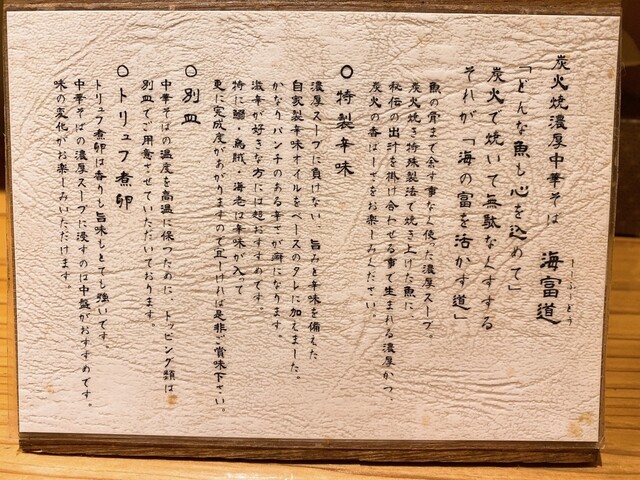 炭火焼濃厚中華そば 海富道
しーふーどう
「どんな魚も心を込めて」
炭火で焼いて無駄なくすする
それが「海の富を活かす道」
の骨まで余す事なく使った濃厚スープ。
炭火焼き特殊製法で焼き上げた魚に
秘伝の出汁を掛け合わせる事で生まれる濃厚かつ
炭火の香ばしさをお楽しみください。
○特製辛味
濃厚スープに負けない、旨みと辛味を備えた
自家製辛味オイルをベースのタレに加えました。
かなりパンチのある辛さが癖になります。
激辛が好きな方には超おすすめです。
特に鯛・烏賊・海老は辛味が入って
更に完成度があがりますので宜しければ是非ご賞味下さい。
○別皿
中華そばの温度を高温に保つために、トッピング類は
別皿でご用意させていただいております。
○トリュフ煮卵
トリュフ煮卵は香りも旨味もとても強いです。
中華そばの濃厚スープに浸すのは中盤がおすすめです。
味の変化がお楽しみいただけます。